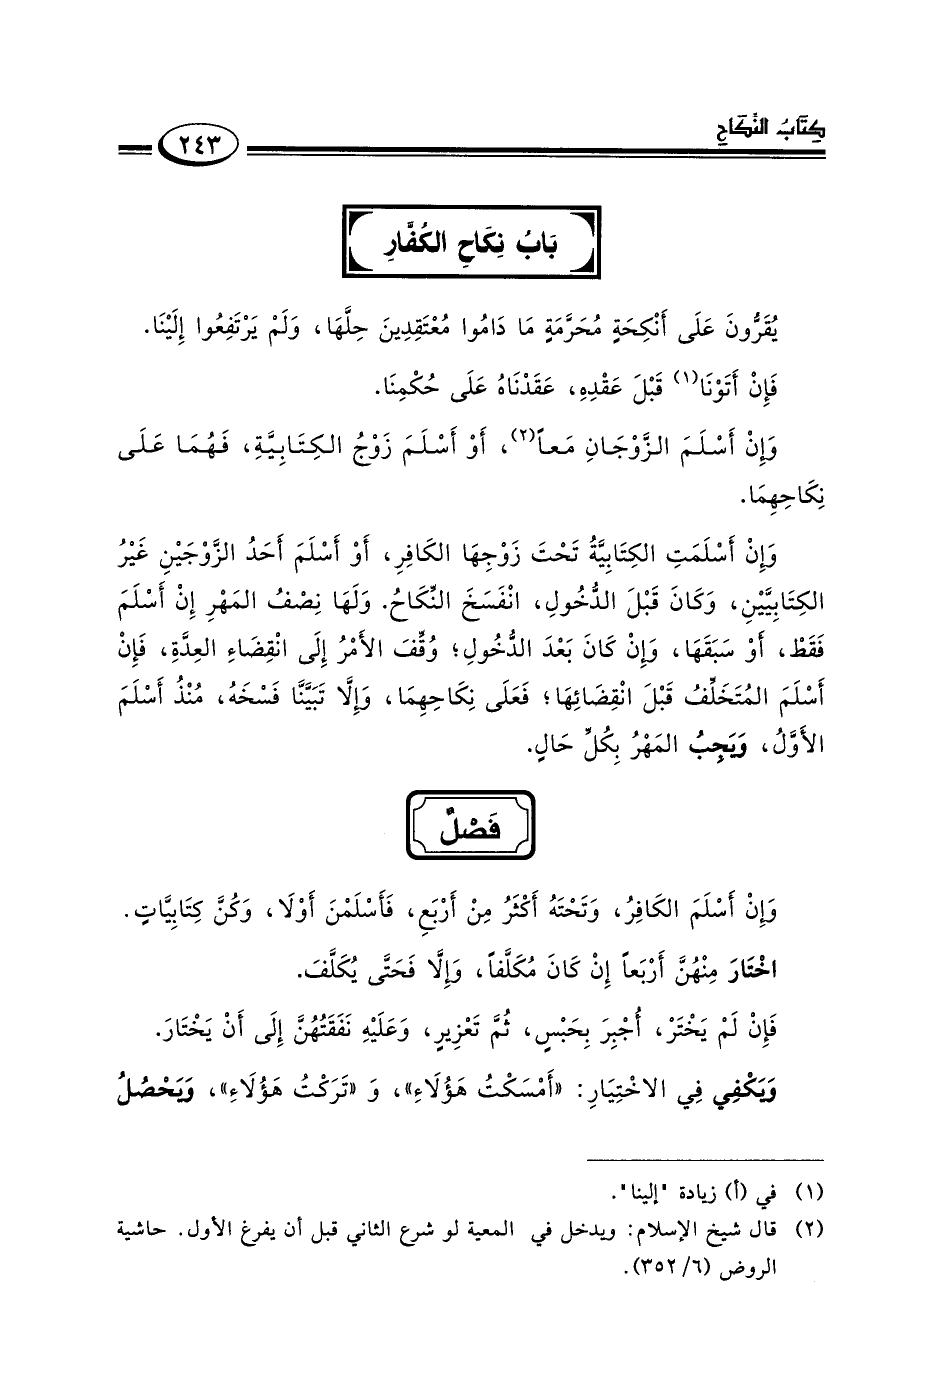 كِتَابُ النِّكَاحِ
٢٤٣
بَابُ نِكَاحِ الكُفَّارِ
يُقَرُّونَ عَلَى أَنْكِحَةٍ مُحَرَّمَةٍ مَا دَامُوا مُعْتَقِدِينَ حِلَّهَا، وَلَمْ يَرْتَفِعُوا إِلَيْنَا.
فَإِنْ أَتَوْنَا(١) قَبْلَ عَقْدِهِ، عَقَدْنَاهُ عَلَى حُكْمِنَا.
وَإِنْ أَسْلَمَ الزَّوْجَانِ مَعاً(٢)، أَوْ أَسْلَمَ زَوْجُ الكِتَابِيَّةِ، فَهُمَا عَلَى
نِكَاحِهِمَا.
وَإِنْ أَسْلَمَتِ الكِتَابِيَّةُ تَحْتَ زَوْجِهَا الكَافِرِ، أَوْ أَسْلَمَ أَحَدُ الزَّوْجَيْنِ غَيْرُ
الكِتَابِيَّيْنِ، وَكَانَ قَبْلَ الدُّخُولِ، انْفَسَخَ النِّكَاحُ. وَلَهَا نِصْفُ المَهْرِ إِنْ أَسْلَمَ
فَقَطْ، أَوْ سَبَقَهَا، وَإِنْ كَانَ بَعْدَ الدُّخُولِ؛ وُقِّفَ الأَمْرُ إِلَى انْقِضَاءِ العِدَّةِ، فَإِنْ
أَسْلَمَ المُتَخَلِّفُ قَبْلَ انْقِضَائِهَا؛ فَعَلَى نِكَاحِهِمَا، وَإِلَّا تَبَيَّنَّا فَسْخَهُ، مُنْذُ أَسْلَمَ
الأَوَّلُ، وَيَجِبُ المَهْرُ بِكُلِّ حَالٍ.
فَصْلٌ
وَإِنْ أَسْلَمَ الكَافِرُ، وَتَحْتَهُ أَكْثَرُ مِنْ أَرْبَعٍ، فَأَسْلَمْنَ أَوْلَا، وَكُنَّ كِتَابِيَّاتٍ.
اخْتَارَ مِنْهُنَّ أَرْبَعاً إِنْ كَانَ مُكَلَّفاً، وَإِلَّا فَحَتَّى يُكَلَّفَ.
فَإِنْ لَمْ يَخْتَرْ، أُجْبِرَ بِحَبْسٍ، ثُمَّ تَعْزِيرٍ، وَعَلَيْهِ نَفَقَتُهُنَّ إِلَى أَنْ يَخْتَارَ.
وَيَكْفِي فِي الاخْتِيَارِ: «أَمْسَكْتُ هَؤُلَاءِ»، وَ «تَرَكْتُ هَؤُلَاءِ»، وَيَحْصُلُ
(١) في (أ) زيادة "إلينا".
(٢) قال شيخ الإسلام: ويدخل في المعية لو شرع الثاني قبل أن يفرغ الأول. حاشية
الروض (٦/ ٣٥٢).